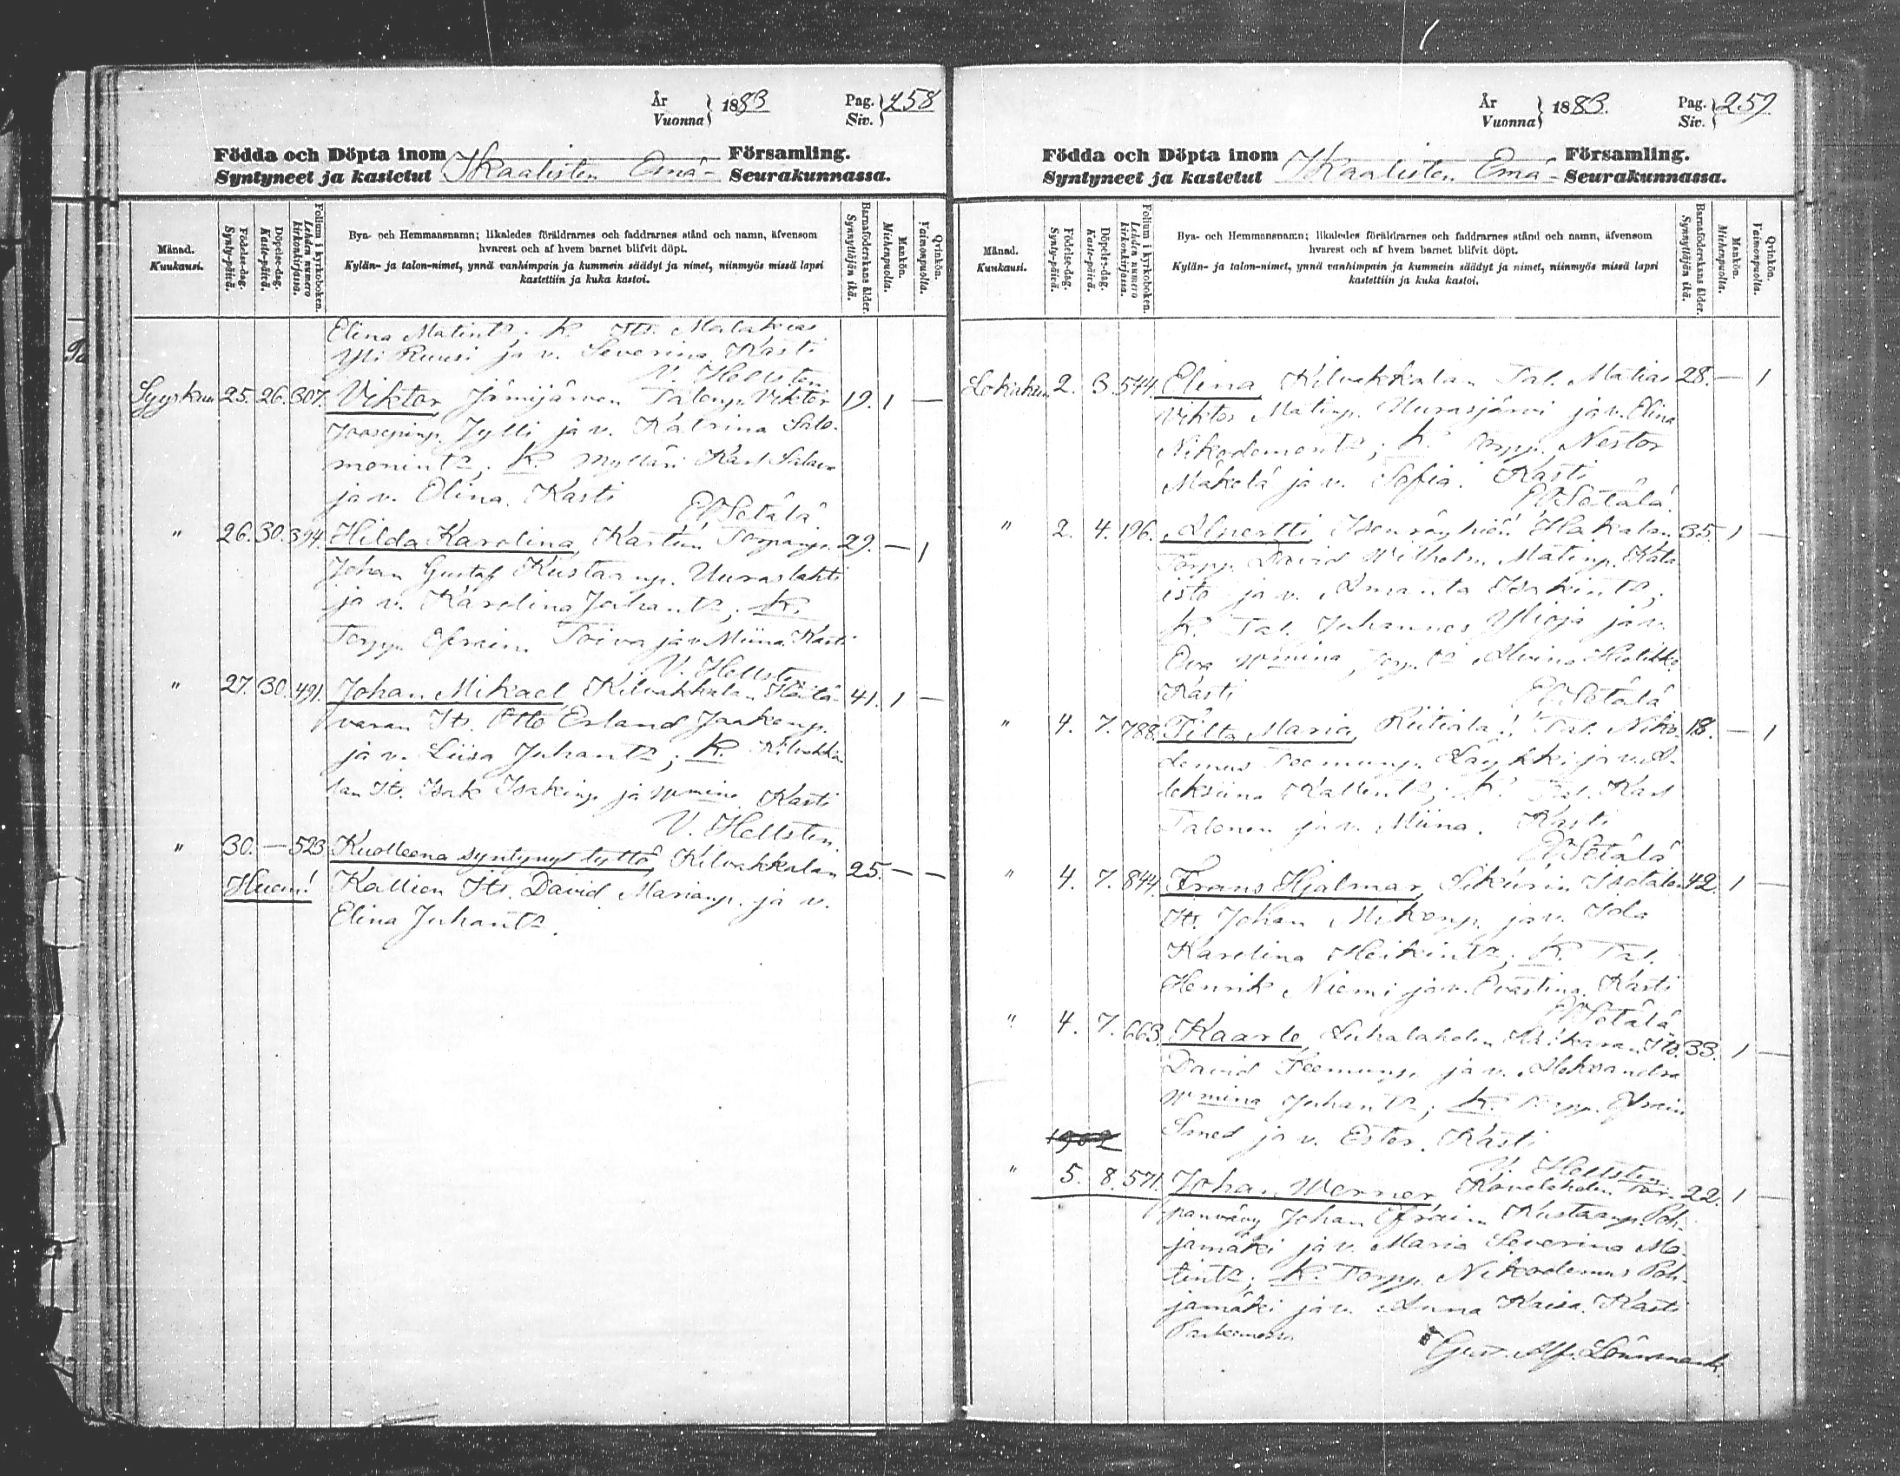 År
Vuonna } 1883
Pag.
Siv. } 258
Födda och Döpta inom
Syntyneet ja kastetut Ikaalisten Emä- Församling.
Seurakunnassa.
Månad.
Kuukausi.
Födelse-dag.
Synty-päivä.
Döpelse-dag.
Kaste-päivä.
Folium i kyrkoboken.
Lehden numero kirkonkirjassa.
Bya- och Hemmansnamn; likaledes föräldrarnes och faddrarnes stånd och namn, äfvensom
hvarest och af hvem barnet blifvit döpt.
Kylän- ja talon-nimet, ynnä vanhimpain ja kummein säädyt ja nimet, niinmyös missä lapsi
kastettiin ja kuka kastoi.
Barnaföderskans ålder.
Synnyttäjän ikä.
Mankön.
Miehenpuolia.
Qvinkön.
Vaimonpuolia.
Elina Matintr; K. Its. Malakias
Yli Ruusi ja v. Severina. Kasti
V. Hellsten.
Syyskuu 25. 26. 307. Viktor, Jämijärven Viktor 19. 1 —
Joosepinp. Jylli ja v. Katrina Salo-
monintr; K. Mylläri Karl
ja v. Elina. Kasti
E V Setälä.
" 26. 30. 394. Hilda Karolina, 29. — 1
Johan Gustaf Kustaanp. Uuraslahti
ja v. Karolina Juhantr; K.
Torpp. Efraim Toiva ja v. Miina. Kasti
V. Hellsten.
" 27. 30. 491. Johan Mikael, Kilvakkalan 41. 1 —
Its. Otto Erland Jaakonp.
ja v. Liisa Juhantr; K. Kilvakka-
lan Its. Isak Isakinp. ja v. Kasti
V. Hellsten.
" 30. — 523 Kuolleena syntynyt tyttö, Kilvakkalan 25. — —
Huom! Kallion Its. David Marianp. ja v.
Elina Juhantr.
År
Vuonna } 1883.
Pag.
Siv. } 259
Födda och Döpta inom
Syntyneet ja kastetut Ikaalisten Emä- Församling.
Seurakunnassa.
Månad.
Kuukausi.
Födelse-dag.
Synty-päivä.
Döpelse-dag.
Kaste-päivä.
Folium i kyrkoboken.
Lehden numero kirkonkirjassa.
Bya- och Hemmansnamn; likaledes föräldrarnes och faddrarnes stånd och namn, äfvensom
hvarest och af hvem barnet blifvit döpt.
Kylän- ja talon-nimet, ynnä vanhimpain ja kummein säädyt ja nimet, niinmyös missä lapsi
kastettiin ja kuka kastoi.
Barnaföderskans ålder.
Synnyttäjän ikä.
Mankön.
Miehenpuolia.
Qvinkön.
Vaimonpuolia.
Lokakuu 2. 3. 544. Elina, Kilvakkalan Tal. Matias 28. — 1
Viktor Matinp. Uurasjärvi ja v. Elina
Nikodemontr; K. Torpp. Nestor
Mäkelä ja v. Sofia. Kasti
E V Setälä.
" 2. 4. 196. Alpertti, Isonröyhiön Hakalan 35. 1 —
Torpp. David Wilhelm Matinp. Kata-
isto ja v. Amanta Isakintr;
K. Tal. Juhannes Ylioja ja v.
Eva Alviina
Kasti E V Setälä
" 4. 7. 788. Tilta Maria, Riitiala, Tal. Niko- 18. — 1
demus Teemunp. Löykki ja v. A-
leksiina Kallentr; K. Tal. Karl
Talonen ja v. Miina. Kasti
E V Setälä
" 4. 7. 844. Frans Hjalmar, Sikurin Isotalon 42. 1 —
Its. Johan Mikonp. ja v. Ida
Karolina Heikintr; K. Tal.
Henrik Niemi ja v. Evastina. Kasti
E V Setälä
" 4. 7. 663. Kaarle, Luhalahden Its. 33. 1 —
David Teemunp. ja v. Aleksandra
Juhantr; K. Torpp. Efraim
Smed ja v. Ester. Kasti
V. Hellsten
1902
" 5. 8. 571. Johan Werner, Kovelahden Tor- 22. 1 —
panvävy Johan Efraim Kustaanp. Poh-
jamäki ja v. Maria Severina Ma-
tintr; K. Torpp. Nikodemus Poh-
jamäki ja v. Anna Kaisa. Kasti
Parkanossa
Gust. Alf. Lönnmark.